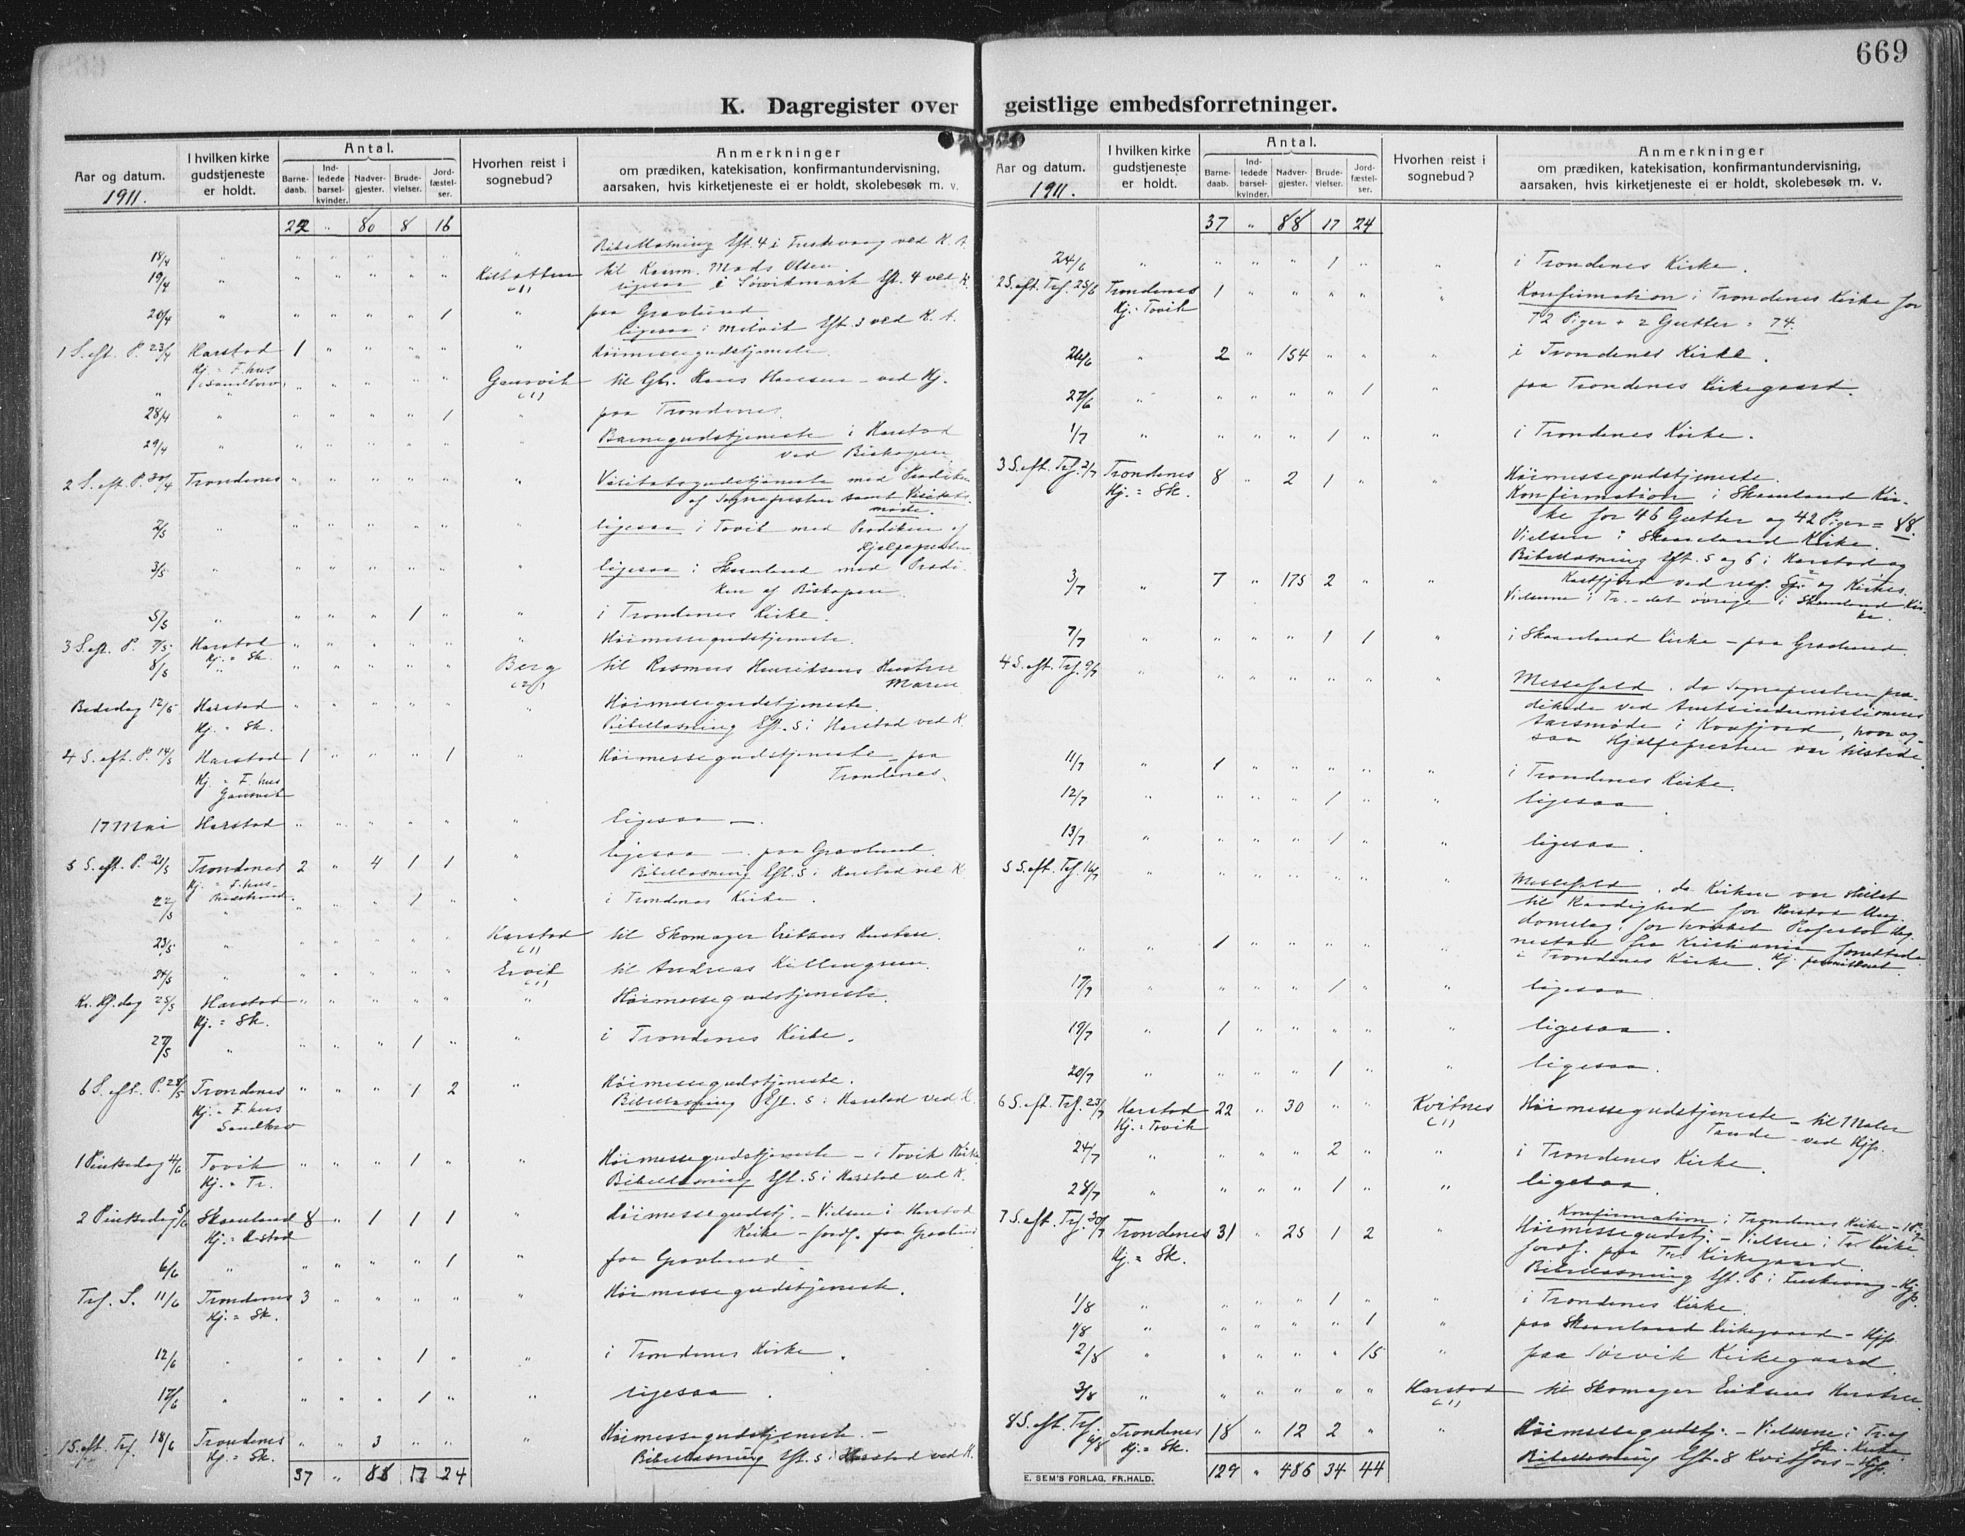 669
K. Dagregister over geistlige embedsforretninger.
Aar og datum. 1911.
I hvilken kirke gudstjeneste er holdt.
Antal.
Barnedaab.
Indledede barselkvinder.
Nadvergjester.
Brudevielser.
Jordfæstelser.
Hvorhen reist i sognebud?
Anmerkninger
om prædiken, katekisation, konfirmantundervisning,
aarsaken, hvis kirketjeneste ei er holdt, skolebesøk m. v.
22 " 80 8 16
Bibellæsning Eft. 4 i ved K. A.
18/4 " " " " " "
19/4 " " " " " " Kilbotten (1) til Mads Olsen.
ligesaa i Sørvikmark Eft. 4 ved K.
20/4 " " " " " 1 " paa Gravlund
ligesaa i Melvik Eft. 3 ved K. A.
1 S. eft. P. 23/4 Harstad 1 " " " " " Høimessegudstjeneste.
Kj. = F. hus
i Sandtorv
" " " " " " " Gausvik (1) til Gbr. Hans Hansen – ved Kj.
28/4 " " " " " 1 " paa Trondenes.
29/4 " " " " " " " Barnegudstjeneste i Harstad
ved Biskopen
2 S. eft. P. 30/4 Trondenes " " " " " " Visitatsgudstjeneste med Prædiken
af Sognepresten samt Visitatsmøde.
2/5 " " " " " " " ligesaa i Tovik med Prædiken af
Hjælpepresten
3/5 " " " " " " " ligesaa i Skaanland med Prædiken af Biskopen.
5/5 " " " " 1 " " i Trondenes Kirke.
3 S. eft. P. 7/5 Harstad " " " " " " Høimessegudstjeneste.
Kj. = Sk.
8/5 " " " " " " Berg (2) til Rasmus Henriksens Hustru
Maren
Bededag 12/5 Harstad " " " " " " Høimessegudstjeneste.
Kj. = Sk. Bibellæsning Eft. 5 i Harstad ved K.
4 S. eft. P. 14/5 Harstad 1 " " " 1 " Høimessegudstjeneste – paa
Trondenes.
Kj. = F. hus
Gausvik
17 Mai Harstad " " " " " " ligesaa –.
5 S. eft. P. 21/5 Trondenes 2 " 4 1 1 " ligesaa –. paa Gravlund.
Kj. = F. hus Bibellæsning Eft. 5 i Harstad ved K
22/5 " " " " 1 " " i Trondenes Kirke.
23/5 " " " " " " Harstad (1) til Skomager Eriksens Hustru.
24/5 " " " " " " Ervik (1) til Andreas Killengreen.
Kr. Hf. dag 25/5 Harstad " " " " " " Høimessegudstjeneste.
Kj. = Sk.
27/5 " " " " 1 " " i Trondenes Kirke.
6 S. eft. P. 28/5 Trondenes " " " 1 2 " Høimessegudstjeneste.
Kj. = F. hus Bibellæsning Eft. 5 i Harstad ved K.
Sandtorv
1 Pinksedag 4/6 Tovik " " " 1 " " Høimessegudstjeneste – i Tovik Kirke
Kj. = Tr. Bibellæsning Eft. 5 i Harstad ved K.
2 Pinksedag 5/6 Skaanland 8 " 1 1 1 " Høimessegudstj. – Vielsen i Harstad
Kj. = H.stad Kirke – Jordf. paa Gravlund
6/6 " " " " " 1 " paa Gravlund
Trf. S. 11/6 Trondenes 3 " " " " " Høimessegudstjeneste.
Kj. = Sk.
12/6 " " " " 1 " " i Trondenes Kirke.
17/6 " " " " 1 " " ligesaa.
1 S. eft. Trf. 18/6 Trondenes " " 3 " " " Høimessegudstjeneste –
Kj. = Sk. Bibellæsning Eft. 5 i Harstad ved K.
37 " 88 17 24
Aar og datum. 1911.
I hvilken kirke gudstjeneste er holdt.
Antal.
Barnedaab.
Indledede barselkvinder.
Nadvergjester.
Brudevielser.
Jordfæstelser.
Hvorhen reist i sognebud?
Anmerkninger
om prædiken, katekisation, konfirmantundervisning,
aarsaken, hvis kirketjeneste ei er holdt, skolebesøk m. v.
37 " 88 17 24
24/6 " " " " 1 " " i Trondenes Kirke.
2 S. eft. Trf. 25/6 Trondenes 1 " " " " " Konfirmation i Trondenes Kirke for
Kj. = Tovik 72 Piger + 2 Gutter = 74.
26/6 " 2 " 154 " " " i Trondenes Kirke.
27/6 " " " " " 1 " paa Trondenes Kirkegaard.
1/7 " " " " 1 " " i Trondenes Kirke.
3 S. eft. Trf. 2/7 Trondenes 8 " 2 1 " " Høimessegudstjeneste.
Kj. = Sk. Konfirmation i Skaanland Kirke for 46 Gutter og 42 Piger = 88.
Vielsen i Skaanland Kirke.
Bibellæsning Eft. 5 og 6 i Harstad og
Kastfjord ved resp. og Kirkes.
3/7 " 7 " 175 2 " " Vielserne i Tr. – det øvrige i Skaanland Kirke.
7/7 " " " " 1 1 " i Skaanland Kirke – paa Gravlund.
4 S. eft. Trf. 9/7 " " " " " " " Messefald, da Sognepresten prædikede ved
aarsmøde i Kvæfjord, hvor ogsaa Hjælpepresten var tilstede.
11/7 " 1 " " " " " i Trondenes Kirke.
12/7 " " " " 1 " " ligesaa
13/7 " " " " 1 " " ligesaa.
5 S. eft. Trf. 16/7 " " " " " " " Messefald, da Kirken var stillet
til Raadighed for Harstad Ungdomslag, for hvilket Professor Hægnestad fra Kristiania forrettede.
" 1 " " " " " i Trondenes Kirke. Kj. permitteret
17/7 " " " " 1 " " ligesaa.
19/7 " 1 " " " " " ligesaa.
20/7 " " " " 1 " " ligesaa.
6 S. eft. Trf. 23/7 Harstad 22 " 30 " " Kvitnes (1) Høimessegudstjeneste – til Maler
Kj. = Tovik Tande – ved Hjp.
24/7 " " " " 2 " " i Trondenes Kirke.
28/7 " " " " 1 " " ligesaa.
7 S. eft. Trf. 30/7 Trondenes 31 " 25 1 2 " Konfirmation i Trondenes Kirke –
Kj. = Sk. Høimessegudstj. – Vielsen i Tr. Kirke.
Jordf. paa Tr. Kirkegaard.
Bibellæsning Eft. 8 i – Hjp.
1/8 " " " " 1 " " i Trondenes Kirke.
1/8 " " " " " 1 " paa Skaanland Kirkegaard – Hjp.
2/8 " " " " " 15 " paa Sørvik Kirkegaard
3/8 " " " " " " Harstad (1) til Skomager Eriksens Hustru.
8 S. eft. Trf. 6/8 Trondenes 18 " 12 2 " " Høimessegudstj. – Vielserne i Tr. og
Kj. = Sk. Sk. Kirke
Bibellæsning Eft. 8 Kvitfors – Hjp.
129 " 486 34 44
E. SEM'S FORLAG, FR.HALD.